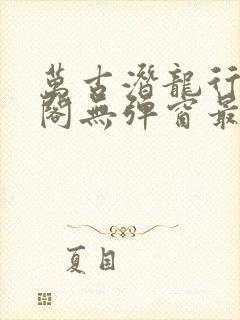 萬古潛龍行
閣無彈窗最
夏目